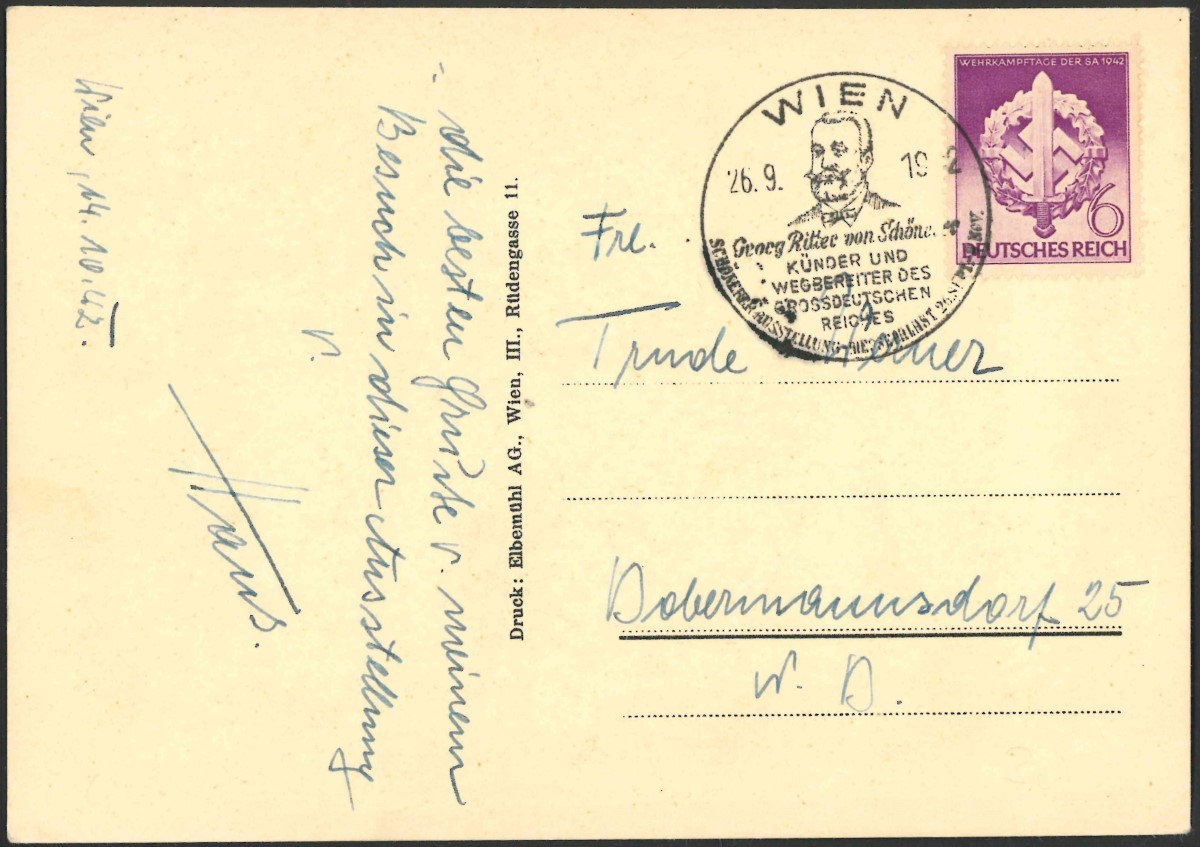 Wien, 14.10.42.
- die besten Grüße v. meinem
Besuch in dieser Ausstellung
v.
Hans.
Druck: Elbemühl AG., Wien, III., Rüdengasse 11.
WIEN
26.9. 19 2
Georg Ritter von Schöne
KÜNDER UND
WEGBEREITER DES
GROSSDEUTSCHEN
REICHES
AUSSTELLUNG
WEHRKAMPFTAGE DER SA 1942
6
DEUTSCHES REICH
Frl.
Trude
Dobermannsdorf 25
N. D.